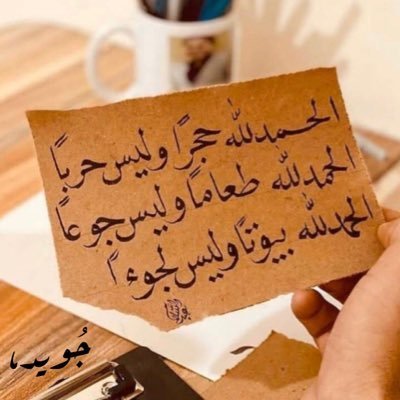 الحمدلله حجرًا وليس حربًا
الحمدلله طعاما وليس جوعاً
الحمدلله بيوتًا وليس لجوءاً
جُويدا